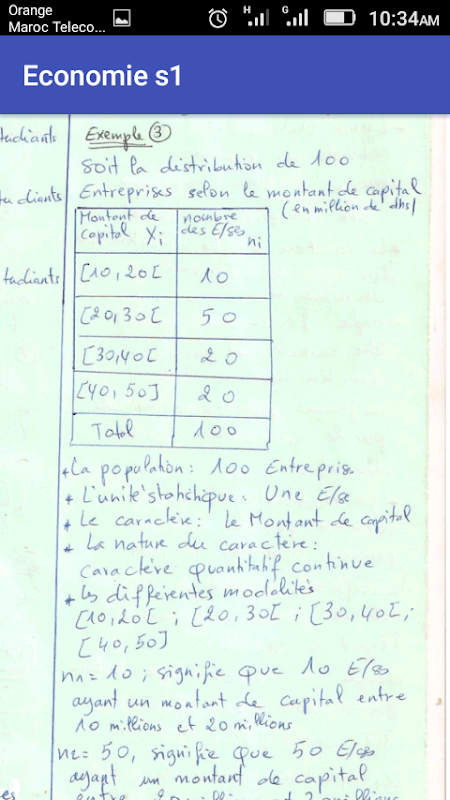 Orange
Maroc Teleco...
H
G
10:34AM
Economie s1
tudiants
Exemple ③
Soit la distribution de 100
tudiants
Entreprises selon le montant de capital
(en million de dhs)
Montant de
Capital Xi
nombre
des E/ses
ni
tudiants
[10,20[
10
[20,30[
50
[30,40[
20
[40,50]
20
Total
100
+ La population: 100 Entrepris
+ L'unité statistique: Une E/se
+ Le caractère: le Montant de capital
+ La nature du caractère:
caractère quantitatif continue
+ les différentes modalités
[10,20[ ; [20,30[ ; [30,40[ ;
[40,50]
n1 = 10 ; signifie que 10 E/ses
ayant un montant de capital entre
10 millions et 20 millions
n2 = 50, signifie que 50 E/ses
ayant un montant de capital
es